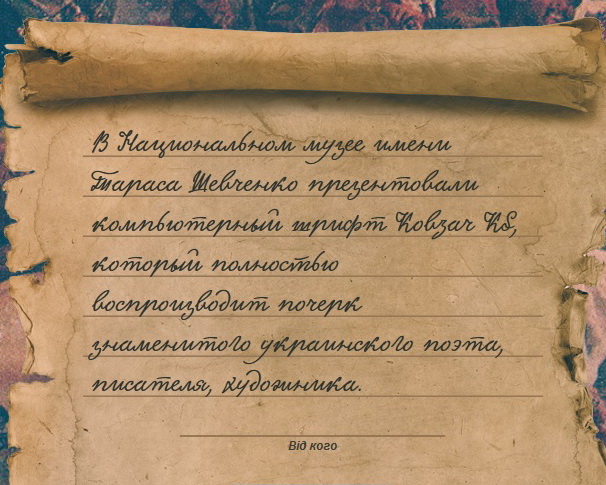 В Национальном музее имени
Тараса Шевченко презентовали
компьютерный шрифт Кобзар КS,
который полностью
воспроизводит почерк
знаменитого украинского поэта,
писателя, художника.
Від кого